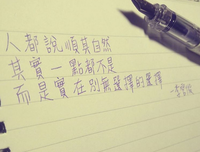 人都說順其自然
其實一點都不是
而是實在別無選擇的選擇